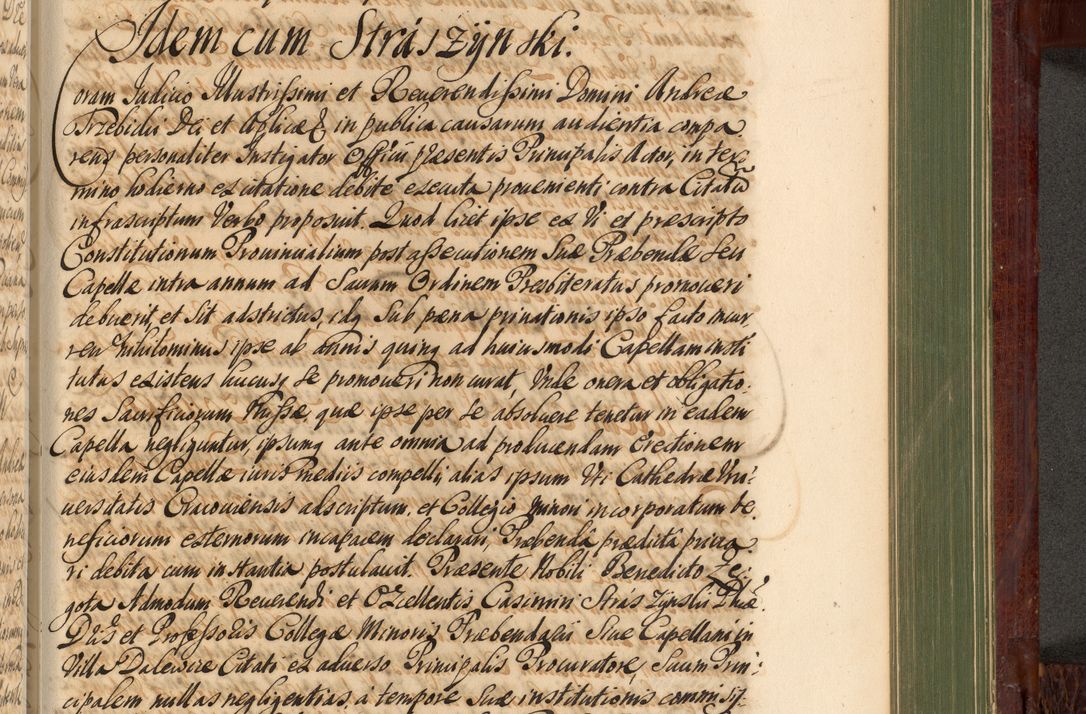 Idem cum Strászÿnski.
Coram Judicio Illustrissimi et Reverendissimi Domini Andreæ
Trzebicki Dei et Aplicæ &, in publica causarum audientia compa
rens personaliter Instigator Officii præsentis Principalis Actor, in ter
mino hodierno ex citatione debite executa provenienti contra Citatũ
infrascriptum Verbo proposuit. Quod licet ipse ex Vi et præscripto
Constitutionum Provincialium post assecutionem Suæ Præbendæ seu
Capellæ intra annum ad Sacrum Ordinem Presbiteratus promoveri
debuerit, et sit adstrictus, idq sub pæna privationis ipso facto incur,
ren nihilominus ipse ab annis quinq ad huiusmodi Capellam insti
tutus existens hucusq se promoveri non curat, Unde onera et obligatio.
nes Sacrificiorum Missæ, quæ ipse per se absolvere tenetur in eadem
Capella negliguntur, ipsumq ante omnia ad producendam Erectionem
eiusdem Capellæ iuris mediis compelli, alias ipsum Vti Cathedræ Vni:
versitatis Cracoviensis adscriptum, et Collegio Minori incorporatum be.
neficiorum externorum incapacem declarari, Præbenda prædicta priva.
ri debita cum instantia postulavit. Præsente Nobili Benedicto Ze:
gota Admodum Reverendi et Excellentis Casimiri Straszÿnski Phiæ.
Dris et Professoris Collegæ Minoris Præbendarii Sive Capellani in
Villa Dalewice Citati ex adverso Principalis Procuratore, Suum Prin:
cipalem nullas negligentias à tempore Suæ institutionis commisis-